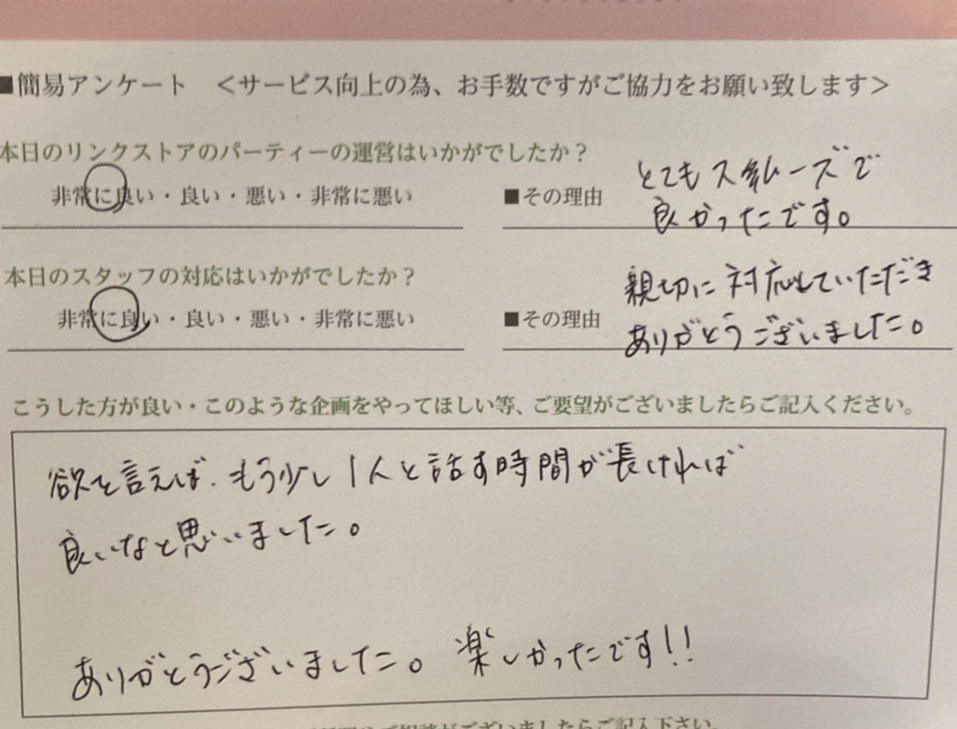 ■簡易アンケート <サービス向上の為、お手数ですがご協力をお願い致します>
本日のリンクストアのパーティーの運営はいかがでしたか?
非常に良い・良い・悪い・非常に悪い ■その理由 とてもスムーズで
良かったです。
本日のスタッフの対応はいかがでしたか?
親切に対応していただき
非常に良い・良い・悪い・非常に悪い ■その理由
ありがとうございました。
こうした方が良い・このような企画をやってほしい等、ご要望がございましたらご記入ください。
欲を言えば、もう少し1人と話す時間が長ければ
良いなと思いました。
ありがとうございました。楽しかったです!!
がございましたらご記入下さい。